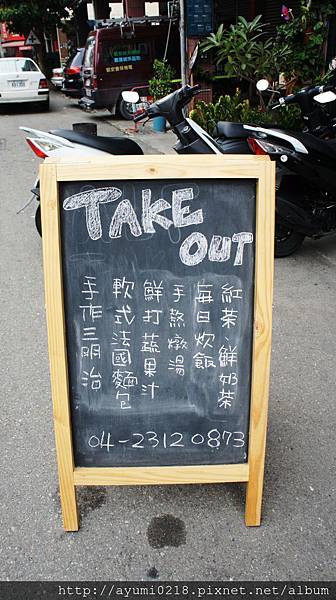 TAKE
OUT
紅茶、鮮奶茶
每日炊飯
手熬燉湯
鮮打蔬果汁
軟式法國麵包
手作三明治
04-23120873
http://ayumi0218.pixnet.net/album